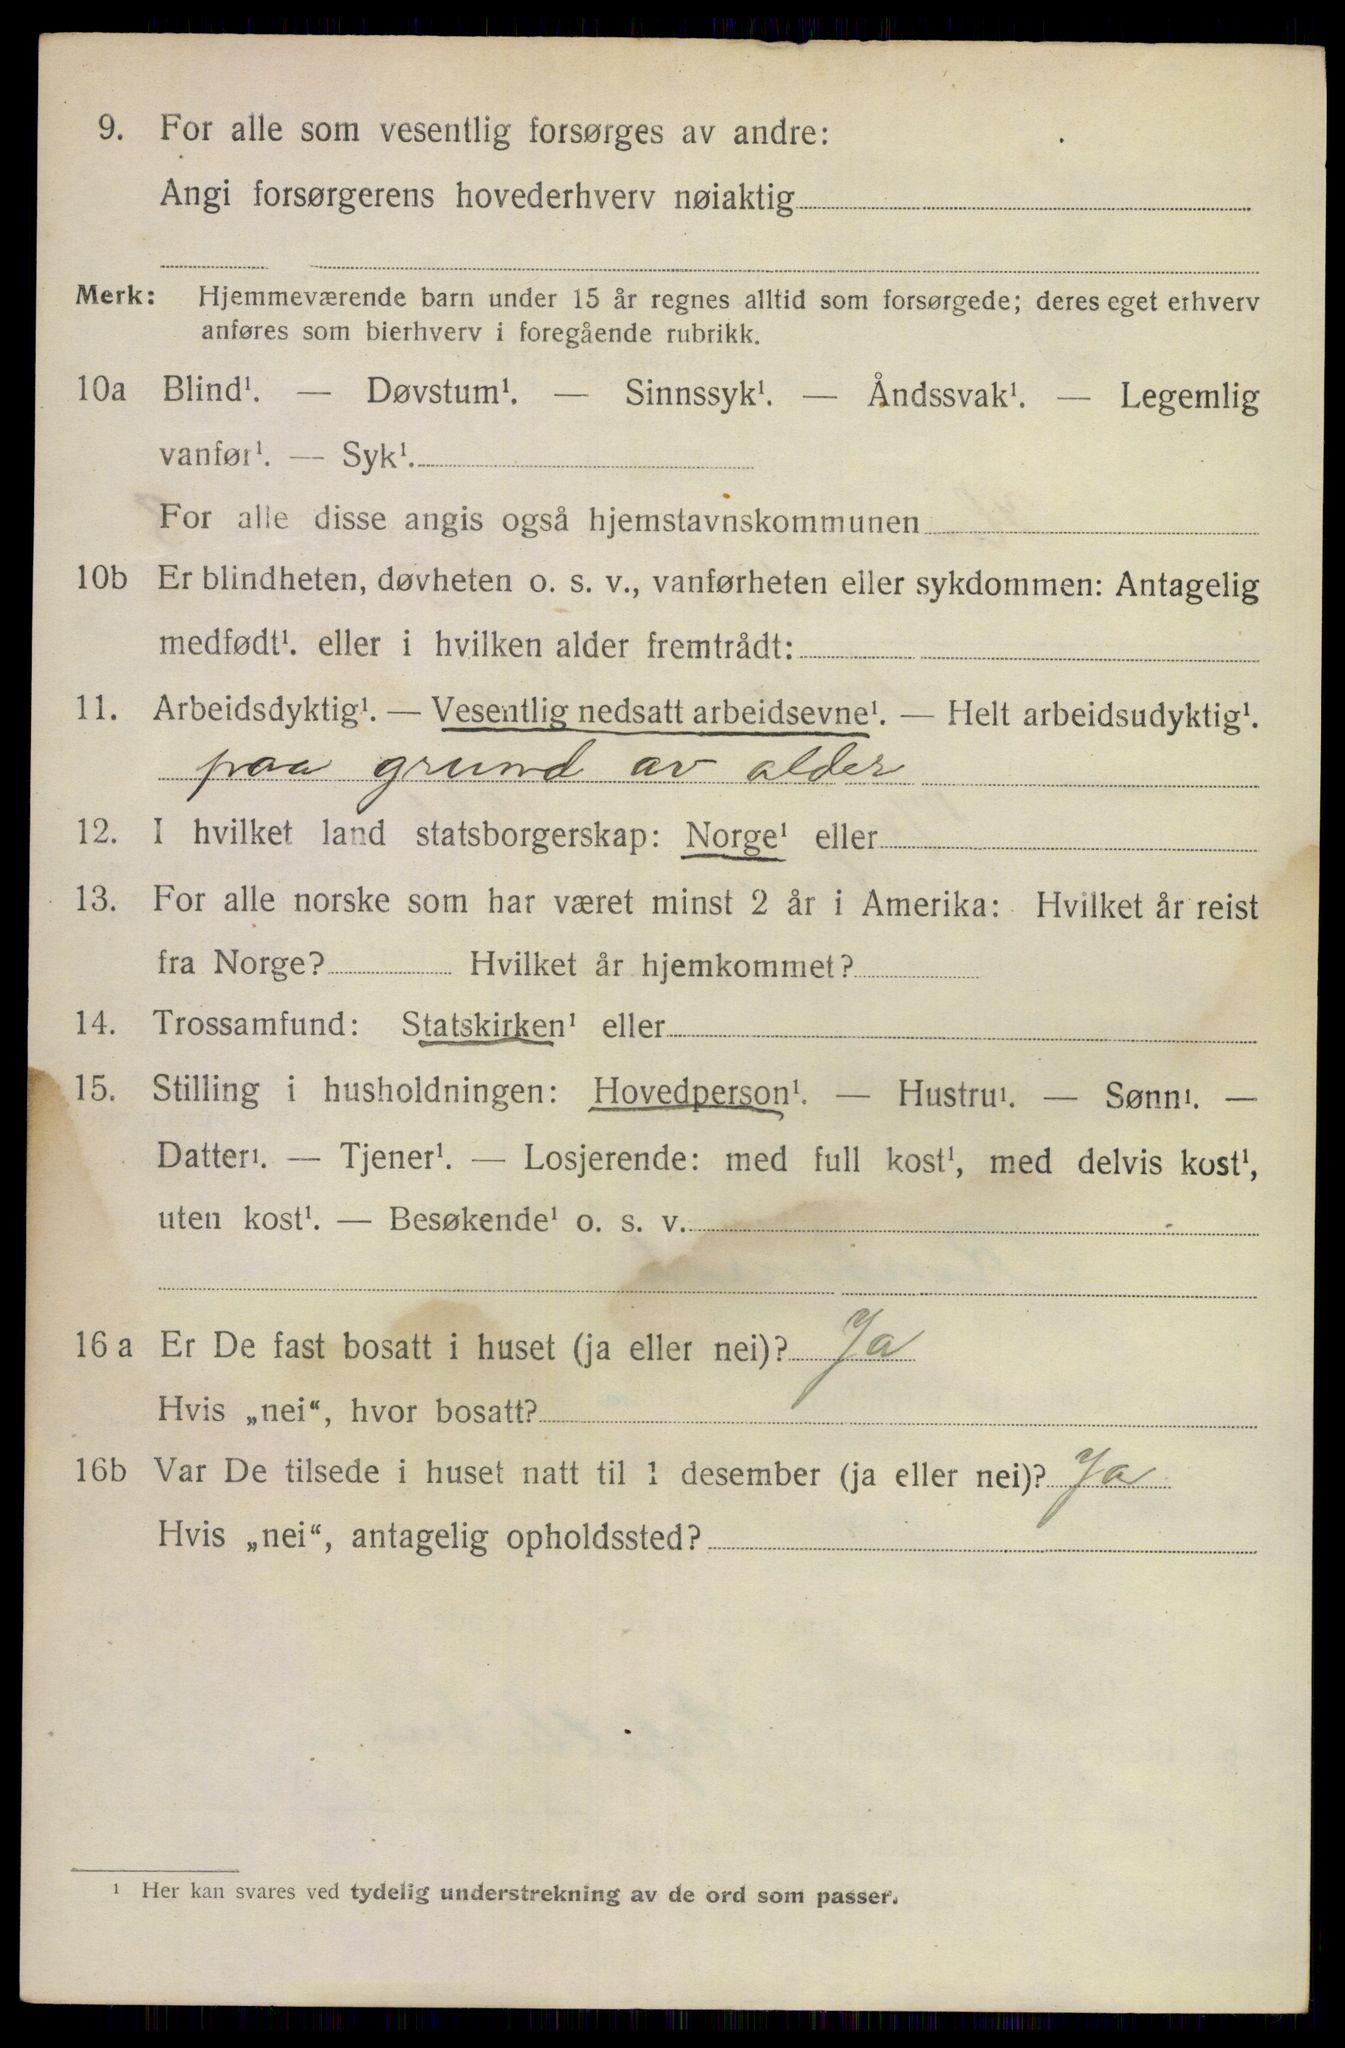 9. For alle som vesentlig forsørges av andre:
Angi forsørgerens hovederhverv nøiaktig
Merk: Hjemmeværende barn under 15 år regnes alltid som forsørgede; deres eget erhverv
anføres som bierhverv i foregående rubrikk.
10a Blind¹. — Døvstum¹. — Sinnssyk¹. — Åndssvak¹. — Legemlig
vanfør¹. — Syk¹.
For alle disse angis også hjemstavnskommunen
10b Er blindheten, døvheten o. s. v., vanførheten eller sykdommen: Antagelig
medfødt¹. eller i hvilken alder fremtrådt:
11. Arbeidsdyktig¹. — Vesentlig nedsatt arbeidsevne¹. — Helt arbeidsudyktig¹.
paa grund av alder
12. I hvilket land statsborgerskap: Norge¹ eller
13. For alle norske som har været minst 2 år i Amerika: Hvilket år reist
fra Norge? Hvilket år hjemkommet?
14. Trossamfund: Statskirken¹ eller
15. Stilling i husholdningen: Hovedperson¹. — Hustru¹. — Sønn¹. —
Datter¹. — Tjener¹. — Losjerende: med full kost¹, med delvis kost¹,
uten kost¹. — Besøkende¹ o. s. v.
16 a Er De fast bosatt i huset (ja eller nei)? Ja
Hvis „nei“, hvor bosatt?
16b Var De tilsede i huset natt til 1 desember (ja eller nei)? Ja
Hvis „nei“, antagelig opholdssted?
¹ Her kan svares ved tydelig understrekning av de ord som passer.